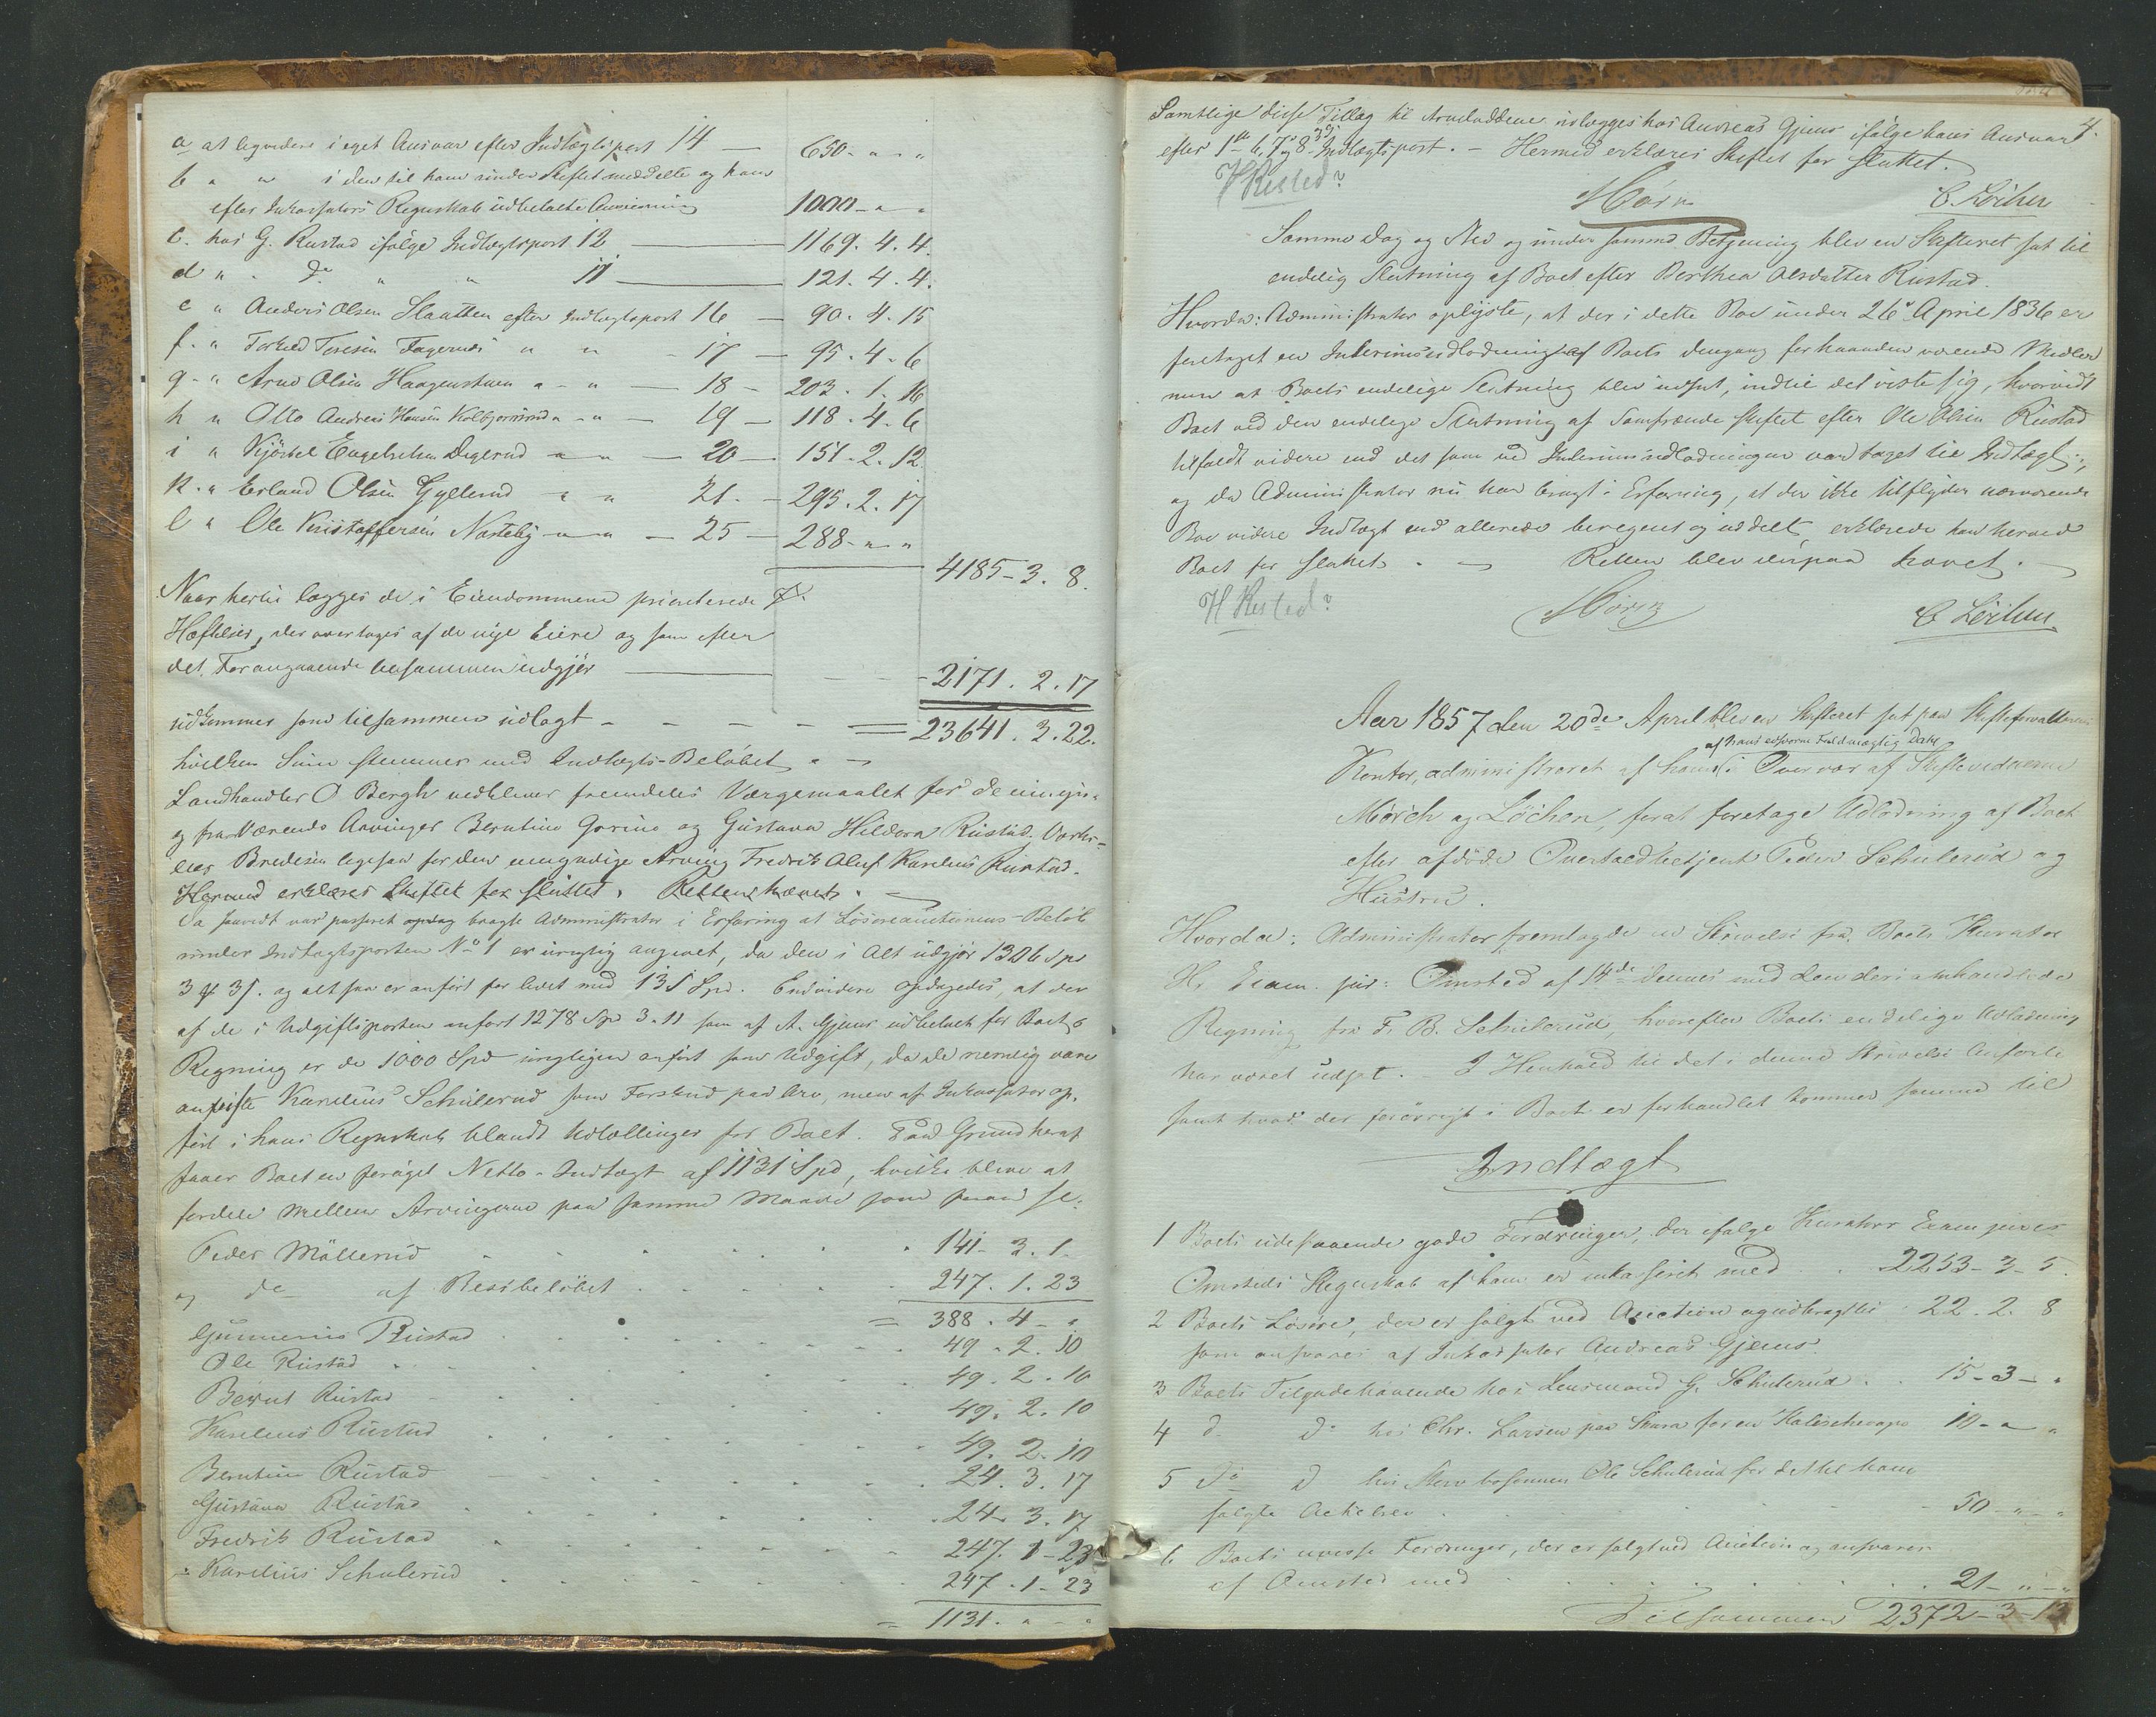 a at liqvidere i eget Ansvar efter Indtægtspost 14 — 650 - " - "
b " " i den til ham under Skiftet meddelte og ham
efter Inkassators Regnskab udbetalte Anvisning 1000 - " - "
c. hos G. Rustad ifølge Indtægtspost 12 — 1169. 4. 4.
d " " Do " " 11 — 121. 4. 4.
e " Anders Olsen Slaatten efter Indtægtspost 16 — 90. 4. 15
f. " Torkild Toresen Fagernæs " " - 17 — 95. 4. 6
g. " Arne Olsen Haagenstuen " - " — 18 - 203. 1. 16
h " Otto Andreas Hansen Kolbjørnsrud " - " — 19 — 118. 4. 6
i " Kjøstel Engebretsen Degerud " " — 20 — 151. 2. 12.
k. " Erland Olsen Gyllerud " " 21. — 295. 2. 17
l " Ole Kristoffersen Nordby " " — 25 — 288 - " "
4185 - 3. 8.
Naar hertil lægges de i Eiendommene prioriterede
Hæftelser, der overtages af de nye Eiere og som efter
det Forangaaende tilsammen udgjør — 2171. 2. 17
udkommer som tilsammen udlagt — = 23641. 3. 22.
hvilken Sum stemmer med Indtægts-Beløbet. —
Landhandler O Bergh vedbliver fremdeles Værgemaalet for de umyn-
og fraværende Arvinger Berntine Gorine og Gustava Hildora Rustad.
Bredesen ligesaa for den umyndige Arving Fredrik Oluf Karelius Rustad.
Hermed erklæres Skiftet for sluttet. Retten hævet. —
Da saavidt var passeret opdag bragte Administrator i Erfaring at Løsøreauctionens-Beløb
under Indtægtsposten No 1 er urigtig angivet, da den i Alt udgjør 1306 Spd
3 ℔ 3 s. og altsaa er anført for lidet med 131 Spd. Endvidere opdagedes, at der
af de i Udgiftsposten anført 1278 Spd 3. 11 som af A. Gjems udbetalt for Boets
Regning er de 1000 Spd urigtigen anført som Udgift, da de nemlig vare
anviste Karelius Schulerud som Forskud paa Arv, men af Inkassator op-
ført i hans Regnskab blandt Udtællinger for Boet. Paa Grund heraf
faaer Boet en forøget Netto-Indtægt af 1131 Spd, hvilke blive at
fordele mellem Arvingerne paa samme Maade som foran se:
Peder Møllerud 141 - 3. 1.
og do af Restbeløbet 247. 1. 23
= 388. 4 - "
Gunnerius Rustad 49. 2. 10
Ole Rustad 49. 2. 10
Bernt Rustad 49. 2. 10
Karelius Rustad 49. 2. 10
Berntine Rustad 24. 3. 17
Gustava Rustad 24. 3. 17
Fredrik Rustad 247. 1 - 23
Karelius Schulerud 247. 1 - 23
= 1131. " - "
4.
Samtlige disse Tillæg til Arvelodderne udlægges hos Andreas Gjems ifølge hans Ansvar
efter 1ste 6, 7 og 8de Indtægtspost. — Hermed erklæres Skiftet for sluttet.
H Rested? Mørch C. Løchen
Samme Dag og Sted og under samme Betjening blev en Skifteret sat til
endelig Slutning af Boet efter Berthea Olsdatter Rustad.
Hvorda: Administrator oplyste, at der i dette Boe under 26de April 1836 er
foretaget en Interimsudlodning af Boets dengang forhaanden værende Midler
men at Boets endelige Slutning blev udsat, indtil det viste sig, hvorvidt
Boet ved den endelige Slutning af Samfrændeskiftet efter Ole Olsen Rustad
tilfaldt videre end det som ved Interimsudlodningen var taget til Indtægt;
og da Administrator nu har bragt i Erfaring, at der ikke tilflyder nærværende
Boe videre Indtægt end allerede beregnet og uddelt, erklærede han herved
Boet for sluttet. — Retten blev derpaa hævet. —
H Rested? Mørch C Løchen
Aar 1857 den 20de April blev en Skifteret sat paa Skifteforvalterens
af hans edsvorne Fuldmægtig Dahl
Kontor, administreret af ham i Overvær af Skiftevidnerne
Mørch og Löchen, forat foretage Udlodning af Boet
efter afdøde Overtoldbetjent Peder Schulerud og
Hustru.
Hvorda: Administrator fremlagde en Skrivelse fra Boets Kurator
Hr Exam. jur: Omsted af 14de dennes med den deri omhandlede
Regning fra F. B. Schulerud, hvorefter Boets endelige Udlodning
har været udsat. — I Henhold til det i denne Skrivelse Anførte
samt hvad der forøvrigt i Boet er forhandlet kommer samme til
Indtægt
1 Boets udestaaende gode Fordringer, der ifølge Kurator Examjuris
Omsteds Regnskab af ham er inkasseret med 2253 - 3 - 5.
2 Boets Løsøre, der er solgt ved Auction og udbragtes 22. 2. 8
som ansvares af Inkassator Andreas Gjems.
3 Boets Tilgodehavende hos Lensmand G. Schulerud 15 - 3 - "
4 d. Do hos Chr. Larsen paa Skara for en Kalechevogn 10 - " "
5 Do d hos Stervbosønnen Ole Schulerud for det til ham
solgte 50 - " - "
6 Boets uvisse Fordringer, der er solgt ved Auction og ansvares
af Omsted med 21 - " - "
Tilsammen 2372 - 3 - 13